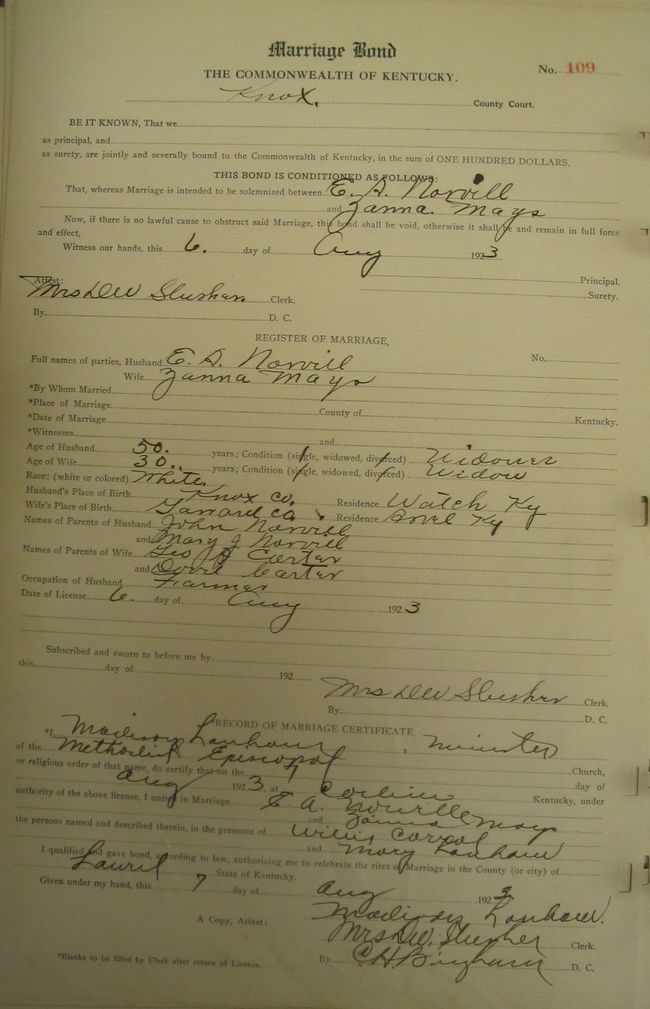 Marriage Bond
THE COMMONWEALTH OF KENTUCKY.
No. 109
Knox, County Court.
BE IT KNOWN, That we
as principal, and
as surety, are jointly and severally bound to the Commonwealth of Kentucky, in the sum of ONE HUNDRED DOLLARS.
THIS BOND IS CONDITIONED AS FOLLOWS:
That, whereas Marriage is intended to be solemnized between E. A. Norvill
and Zanna Mays
Now, if there is no lawful cause to obstruct said Marriage, this bond shall be void, otherwise it shall be and remain in full force
and effect,
Witness our hands, this 6. day of Aug 1923
Principal,
Attest: Surety.
Mrs DW Slusher Clerk.
By D. C.
REGISTER OF MARRIAGE,
Full names of parties, Husband E. A. Norvill No.
Wife Zanna Mays
*By Whom Married
*Place of Marriage County of Kentucky.
*Date of Marriage
*Witnesses and
Age of Husband 50. years; Condition (single, widowed, divorced) Widower
Age of Wife 30.. years; Condition (single, widowed, divorced) Widow
Race: (white or colored) White.
Husband's Place of Birth Knox Co. Residence Watch Ky
Wife's Place of Birth Garrard Co. Residence Ky
Names of Parents of Husband John Norvill
and Mary J Norvill
Names of Parents of Wife Geo Carter
and Carter
Occupation of Husband Farmer
Date of License 6. day of Aug 1923
Subscribed and sworn to before me by
this day of 192
Mrs DW Slusher Clerk.
By D. C.
RECORD OF MARRIAGE CERTIFICATE,
*I, Madison Lanham, minister
of the Methodist Episcopal Church,
or religious order of that name, do certify that on the 7 day of
Aug 1923. at Corbin Kentucky, under
authority of the above license, I united in Marriage E A. Norvill
and Zanna Mays
the persons named and described therein, in the presence of Carrol
and Mary Lanham
I qualified and gave bond, according to law, authorizing me to celebrate the rites of Marriage in the County (or city) of
Laurel State of Kentucky.
Given under my hand, this 7 day of Aug 1923
Madison Lanham.
A Copy, Attest: Mrs DW. Slusher Clerk.
*Blanks to be filled by Clerk after return of License. By C H Bingham D. C.